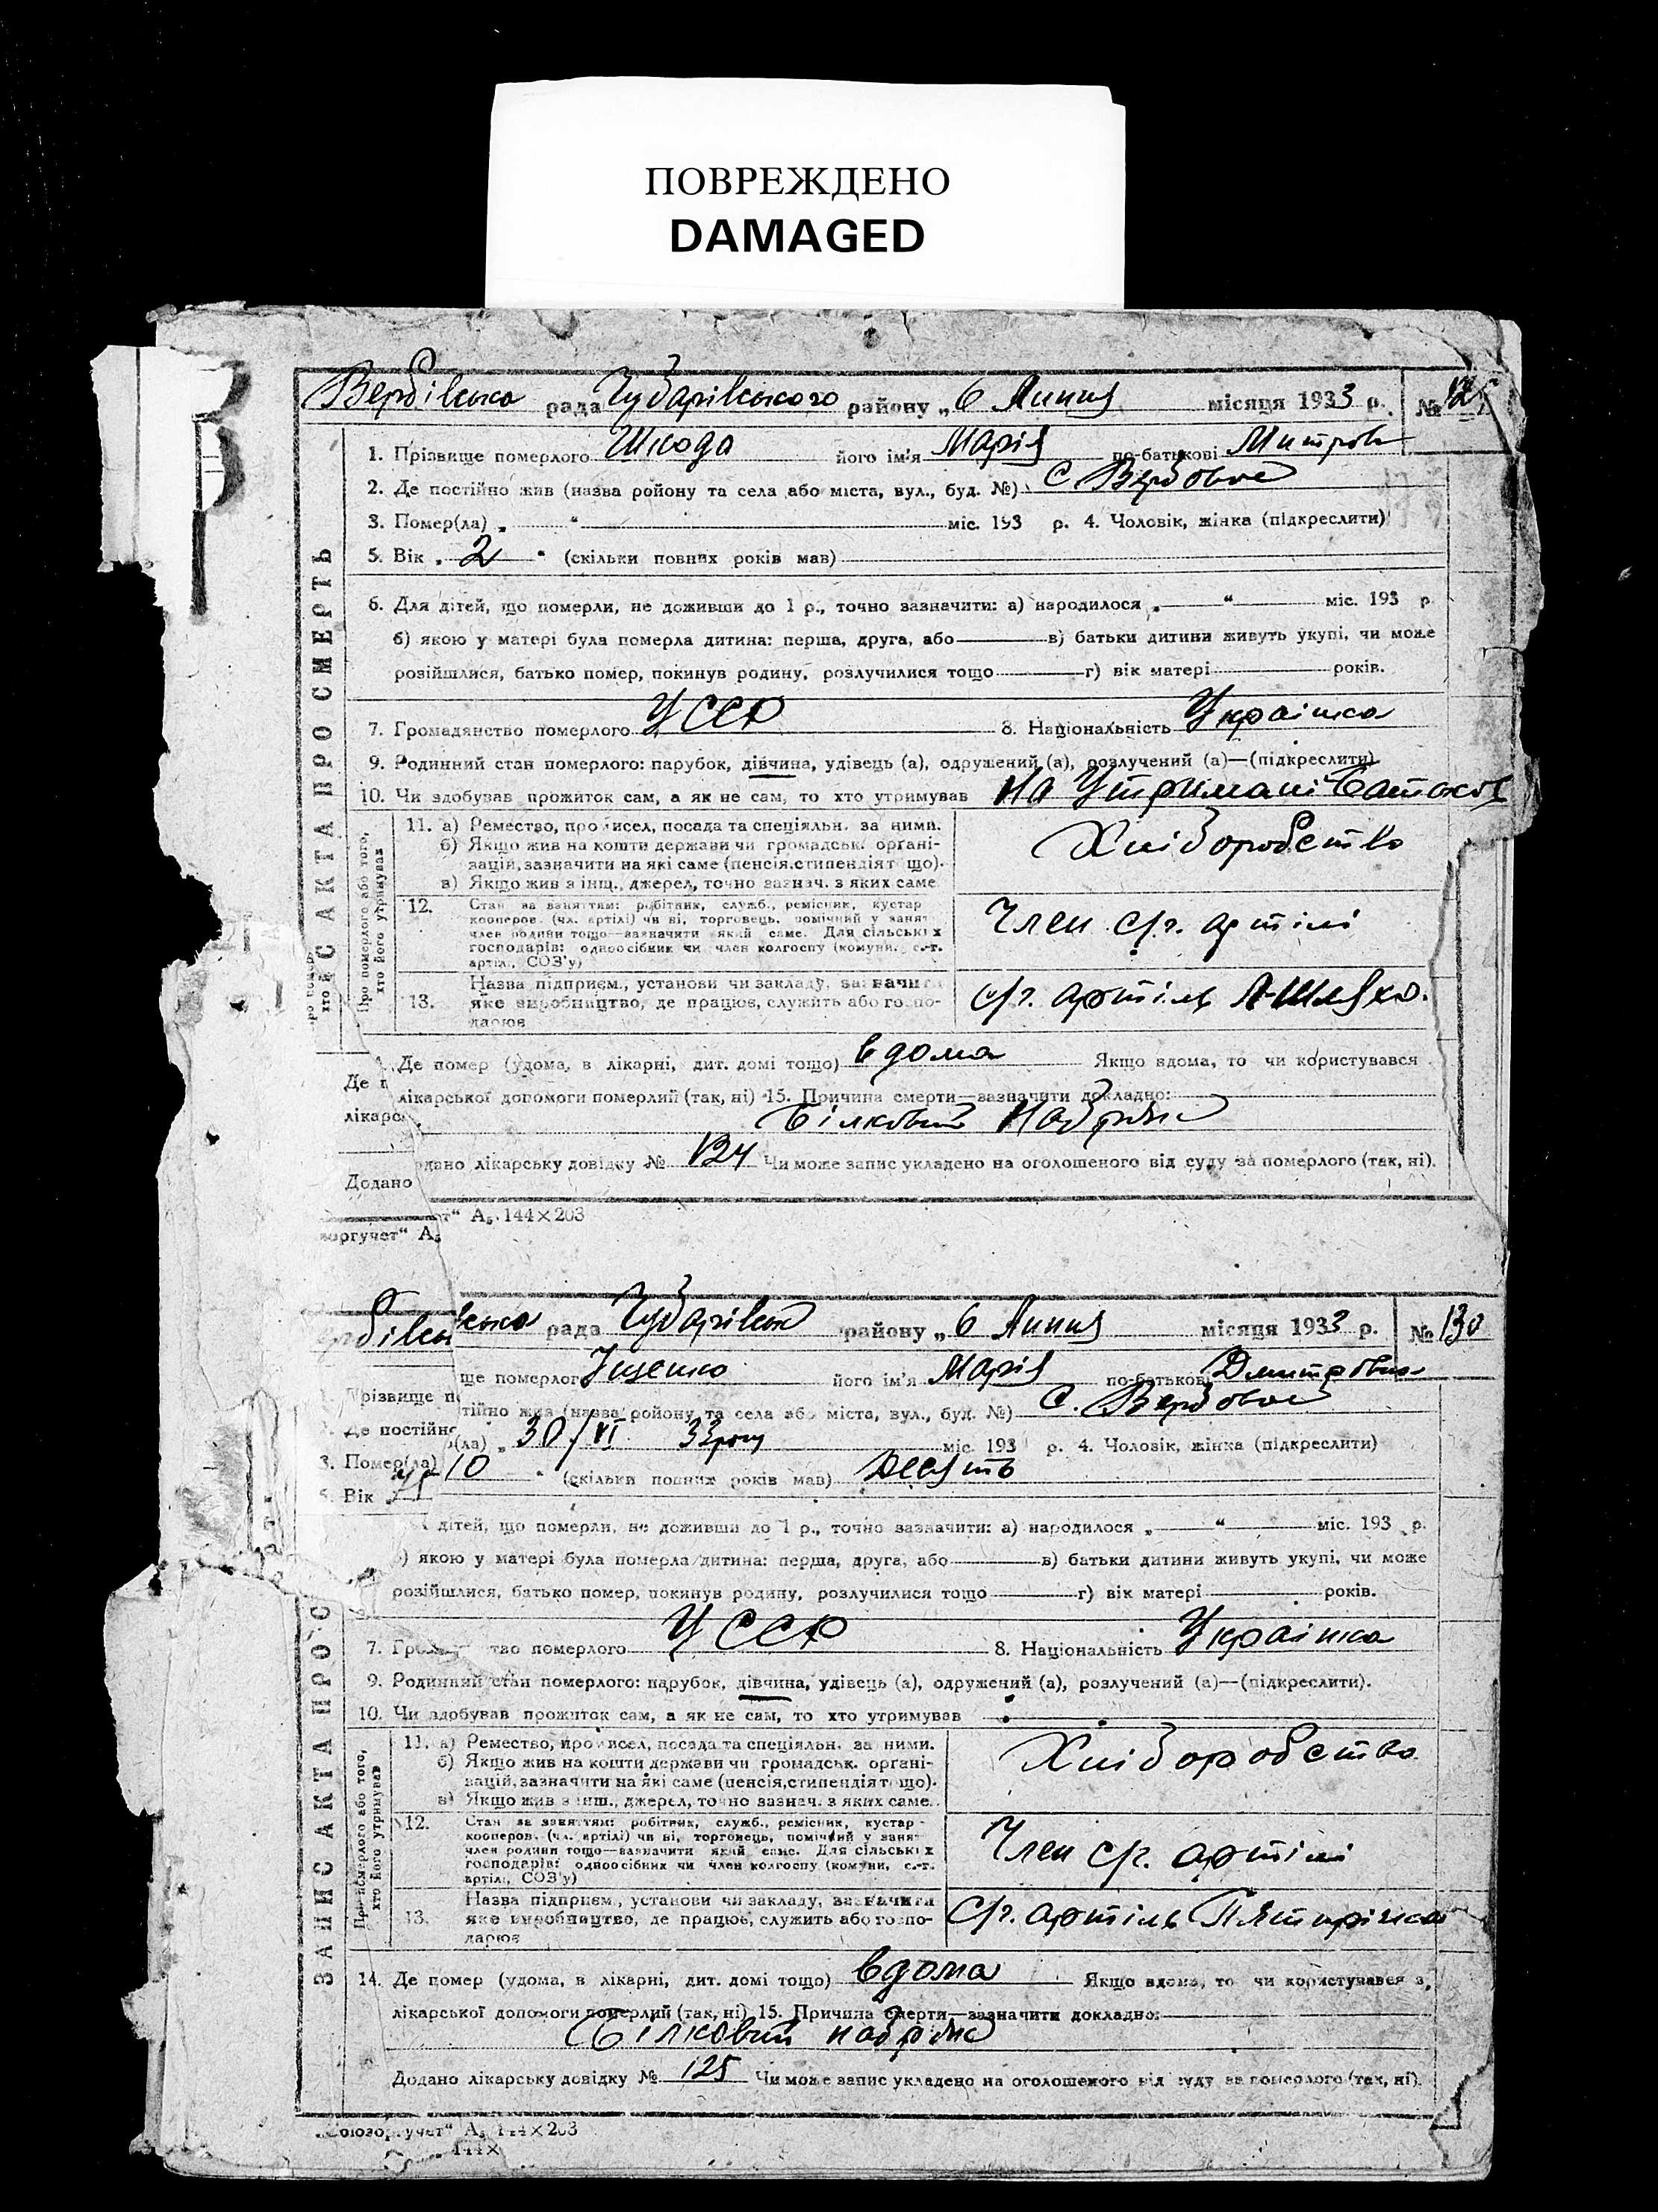 ПОВРЕЖДЕНО
DAMAGED
Вербівська рада Чубарівського району „ 6 Липня місяця 1933 р. №
1. Прізвище померлого Шкода його ім'я Марія по-батькові Митров
2. Де постійно жив (назва ройону та села або міста, вул., буд. №) С Вербовое
3. Помер(ла) „ “ міс. 193 р. 4. Чоловік, жінка (підкреслити)
5. Вік „ 2 “ (скільки повних років мав)
6. Для дітей, що померли, не доживши до 1 р., точно зазначити: а) народилося „ “ міс. 193 р
б) якою у матері була померла дитина: перша, друга, або в) батьки дитини живуть укупі, чи може
розійшлися, батько помер, покинув родину, розлучилися тощо г) вік матері років.
7. Громадянство померлого УССР 8. Національність Українка
9. Родинний стан померлого: парубок, дівчина, удівець (а), одружений (а), розлучений (а)—(підкреслити)
10. Чи здобував прожиток сам, а як не сам, то хто утримував На Утримані Батьков
ЗАПИС АКТА ПРО СМЕРТЬ
Про померлого або того,
хто його утримував
11. а) Ремество, промисел, посада та спеціяльн. за ними.
б) Якщо жив на кошти держави чи громадськ. органі-
зацій, зазначити на які саме (пенсія, стипендія т що).
в) Якщо жив з інш., джерел, точно зазнач. з яких саме
Хліборобство
12. Стан за заняттям: робітник, служб., ремісник, кустар
кооперов. (чл. артілі) чи ні, торговець, помічний у заня-
член родини тощо—зазначити який саме. Для сільських
господарів: одноосібник чи член колгоспу (комуни, с.-г.
артіл., СОЗ'у)
Член с/г. артілі
13. Назва підприєм., установи чи закладу, зазначити
яке виробництво, де працює, служить або госпо-
дарює
с/г. артіль
Де помер (удома, в лікарні, дит. домі тощо) вдома Якщо вдома, то чи користувався
лікарської допомоги померлий (так, ні) 15. Причина смерти—зазначити докладно:
Білковий Набряк
Де п
лікарс
одано лікарську довідку № 124 Чи може запис укладено на оголошеного від суду за померлого (так, ні).
Додано
т“ А₅ 144×203
оргучет“ А₅
ська рада Чубарівськ району „ 6 Липня місяця 1933 р. № 130
рбівськ
ще померлог Іщенко його ім'я Марія по-батькові Дмитровна
1. Прізвище п
тійно жив (назва ройону та села або міста, вул., буд. №) С. Вербовое
Де постійно
(ла) „ 30/VI 33 року міс. 193 р. 4. Чоловік, жінка (підкреслити)
3. Помер(ла)
10 “ (скільки повних років мав) Десять
5. Вік
дітей, що померли, не доживши до 1 р., точно зазначити: а) народилося „ “ міс. 193 р.
) якою у матері була померла дитина: перша, друга, або в) батьки дитини живуть укупі, чи може
розійшлися, батько помер, покинув родину, розлучилися тощо г) вік матері років.
7. Гро тво померлого УССР 8. Національність Українка
9. Родинний стан померлого: парубок, дівчина, удівець (а), одружений (а), розлучений (а)—(підкреслити).
10. Чи здобував прожиток сам, а як не сам, то хто утримував
ЗАПИС АКТА ПРО С
Про померлого або того,
хто його утримував
11. а) Ремество, промисел, посада та спеціяльн. за ними.
б) Якщо жив на кошти держави чи громадськ. органі-
зацій, зазначити на які саме (пенсія, стипендія т що).
в) Якщо жив з інш., джерел, точно зазнач. з яких саме.
Хліборобство
12. Стан за заняттям: робітник, служб., ремісник, кустар-
кооперов. (чл. артілі) чи ні, торговець, помічний у заня-
член родини тощо—зазначити який саме. Для сільських
господарів: одноосібник чи член колгоспу (комуни, с.-г.
артіл., СОЗ'у)
Член с/г. артілі
13. Назва підприєм., установи чи закладу, зазначити
яке виробництво, де працює, служить або госпо-
дарює
с/г. артіль Пятирічка
14. Де помер (удома, в лікарні, дит. домі тощо) вдома Якщо вдома, то чи користувався з
лікарської допомоги померлий (так, ні) 15. Причина смерти—зазначити докладно:
Білковий набряк
Додано лікарську довідку № 125 Чи може запис укладено на оголошеного від суду за померлого (так, ні).
„Союзоргучет“ А₅ 144×203
144×